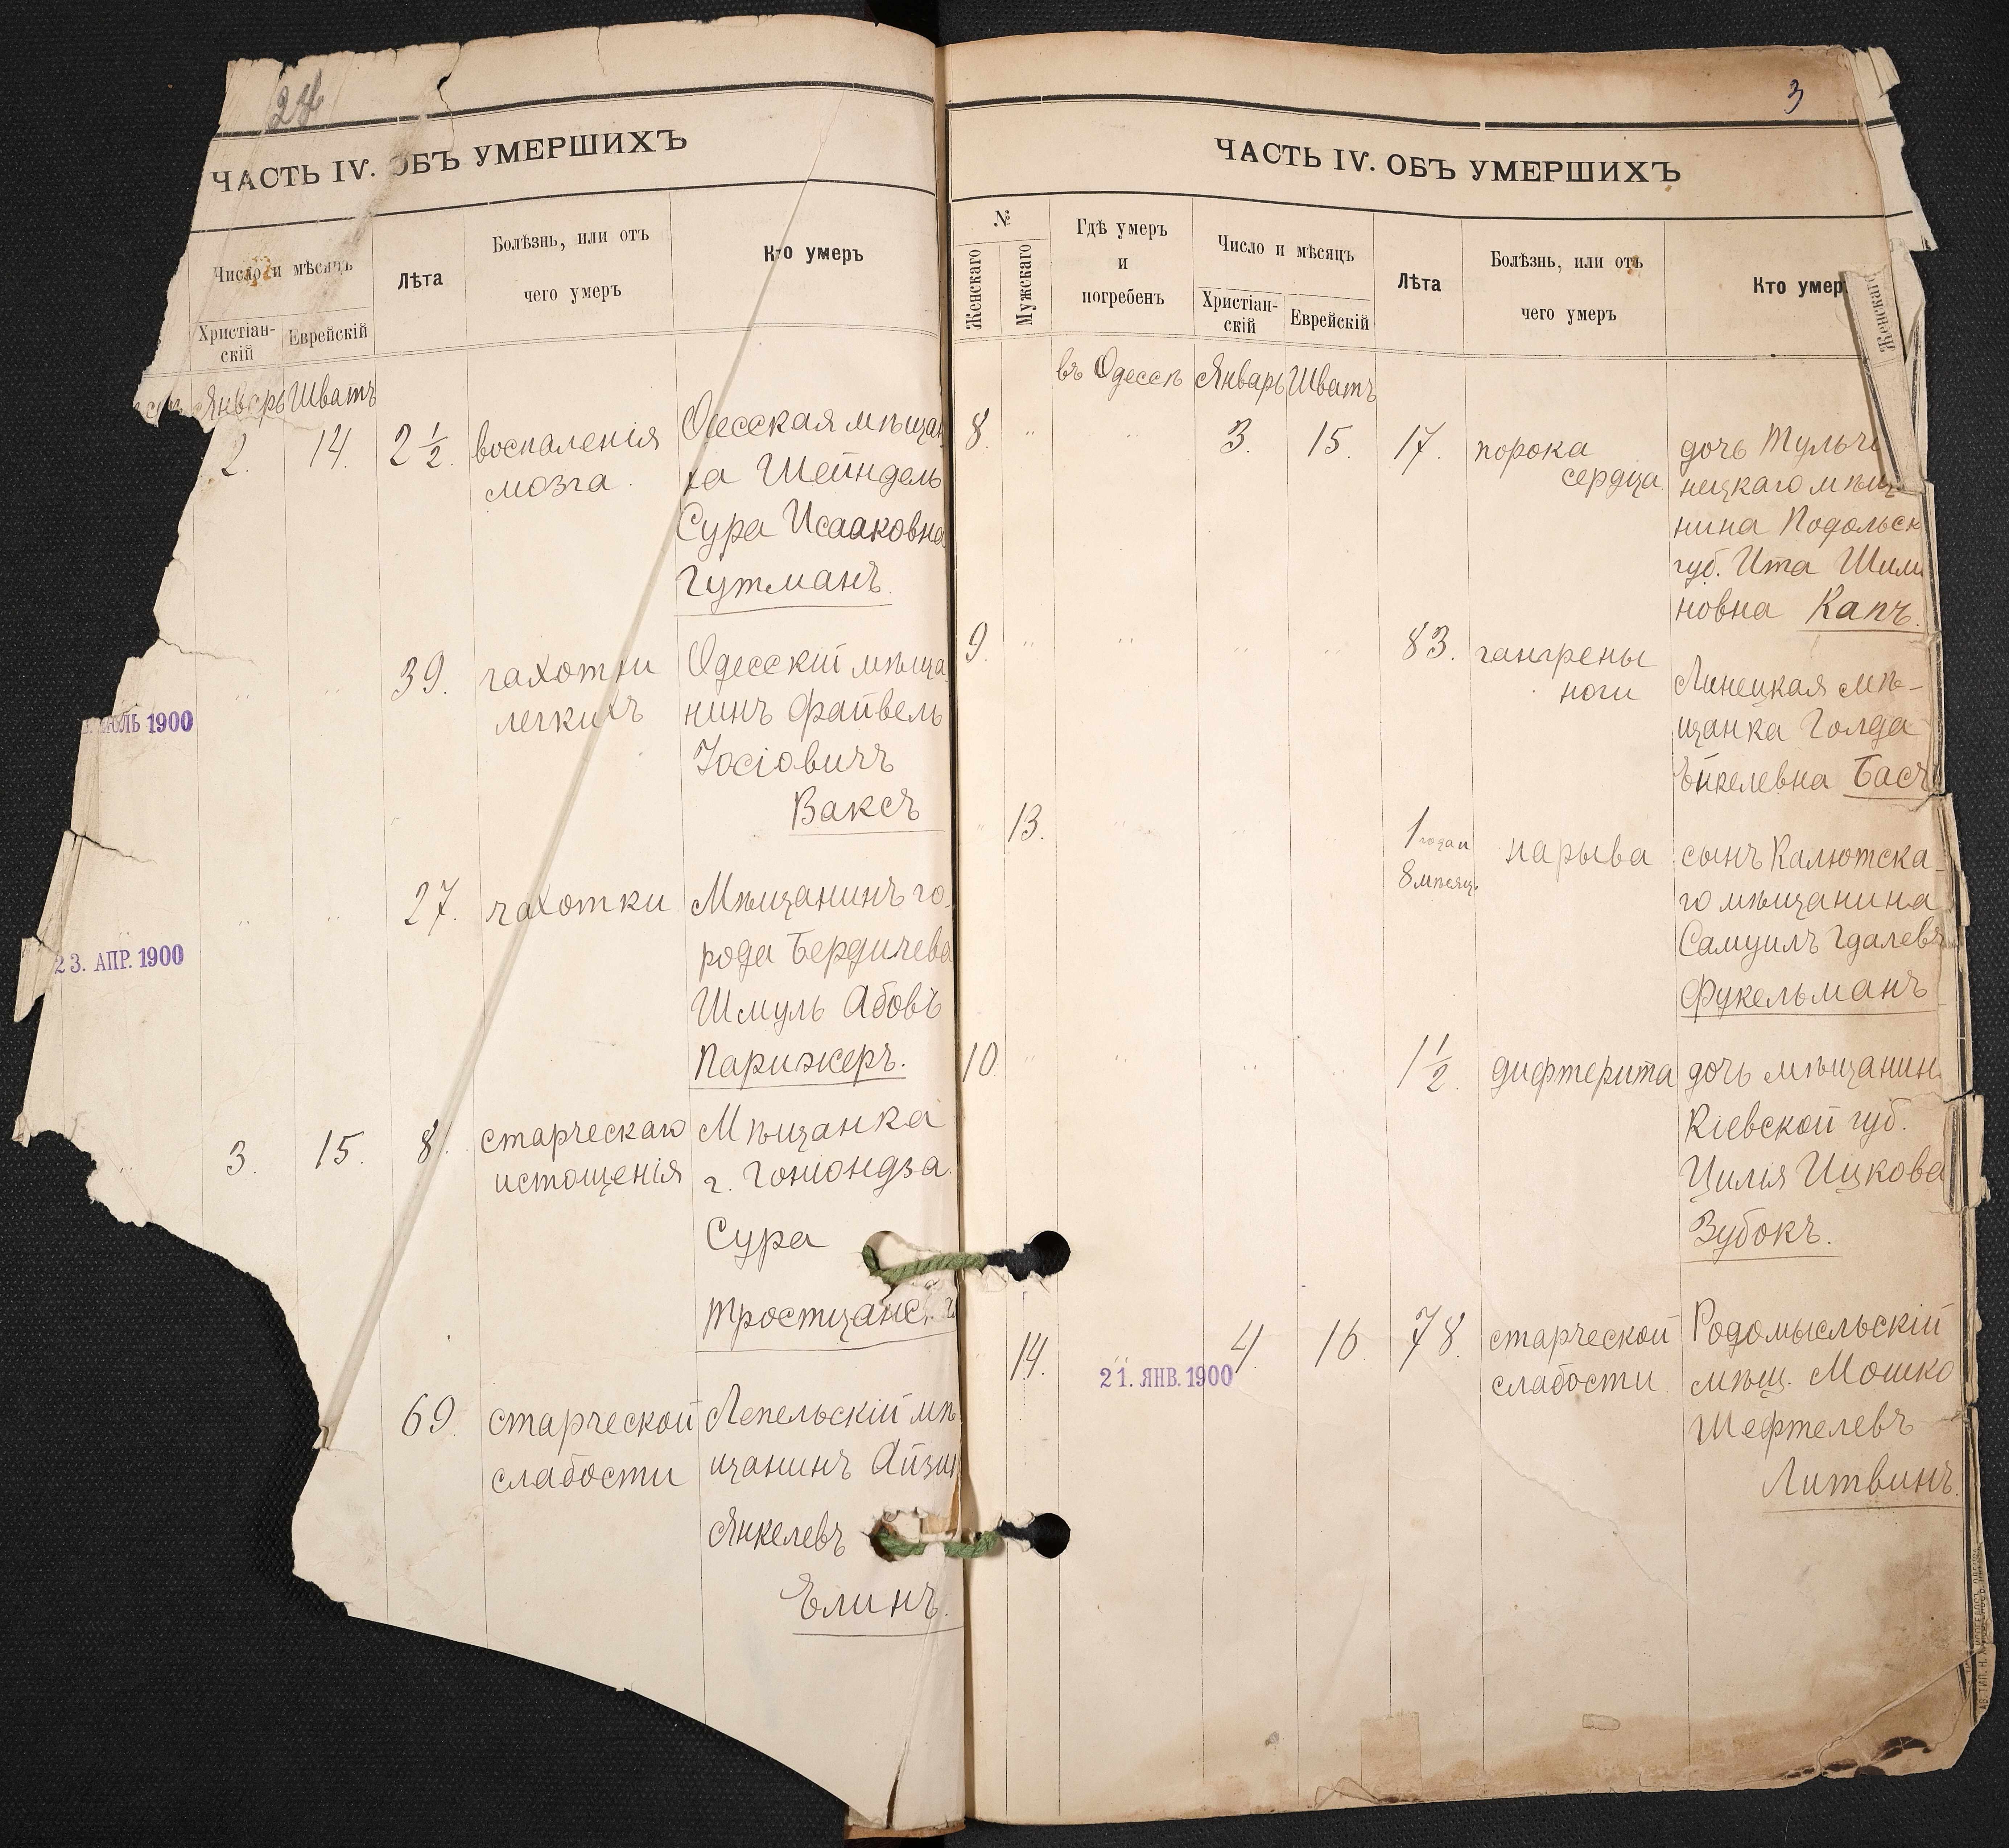 24
ЧАСТЬ IV. ОБЪ УМЕРШИХЪ
Число и мѣсяцъ
Христіан-
скій
Еврейскій
Лѣта
Болѣзнь, или отъ
чего умеръ
Кто умеръ
Январь Шватъ
2. 14. 2 1/2. воспаленія
мозга.
Одесская мѣщан
ка Шейндель
Сура Исааковна
Гутманъ.
" " 39. чахотки
легкихъ
Одесскій мѣща
нинъ Файвель
Іосіовичъ
Ваксъ
ЮЛЬ 1900
" " 27. чахотки
Мѣщанинъ го-
рода Бердичева
Шмуль Абовъ
Парижеръ.
23. АПР. 1900
" 3. 15. 8 . старческаго
истощенія
Мѣщанка
г. Гоніондза.
Сура
69. старческой
слабости
Лепельскій мѣ
щанинъ
Янкелевъ
Елинъ.
3
ЧАСТЬ IV. ОБЪ УМЕРШИХЪ
№
Женскаго
Мужскаго
Гдѣ умеръ
и
погребенъ
Число и мѣсяцъ
Христіан-
скій
Еврейскій
Лѣта
Болѣзнь, или отъ
чего умеръ
Кто умер
Женскаго
въ Одессѣ Январь Шватъ
8. " " 3. 15. 17. порока
сердца
дочь Тульчи
нецкаго мѣщ
нина Подольск
губ. Ита Шим
новна Капъ.
9. " " " " 83. гангрены
ноги
Линецкая мѣ-
щанка Голда
Бася
" 13. " " " 1 года и
8 мѣсяц.
нарыва
сынъ Калютска-
го мѣщанина
Самуилъ Гдалевъ
Фукельманъ
10 " " " " 1 1/2. дифтерита
дочь мѣщанин
Кіевской губ.
Цилія Ицкова
Зубокъ.
" 14. " 4. 16. 78. старческой
слабости
Родомысльскій
мѣщ. Мошко
Шефтелевъ
Литвинъ.
21. ЯНВ. 1900